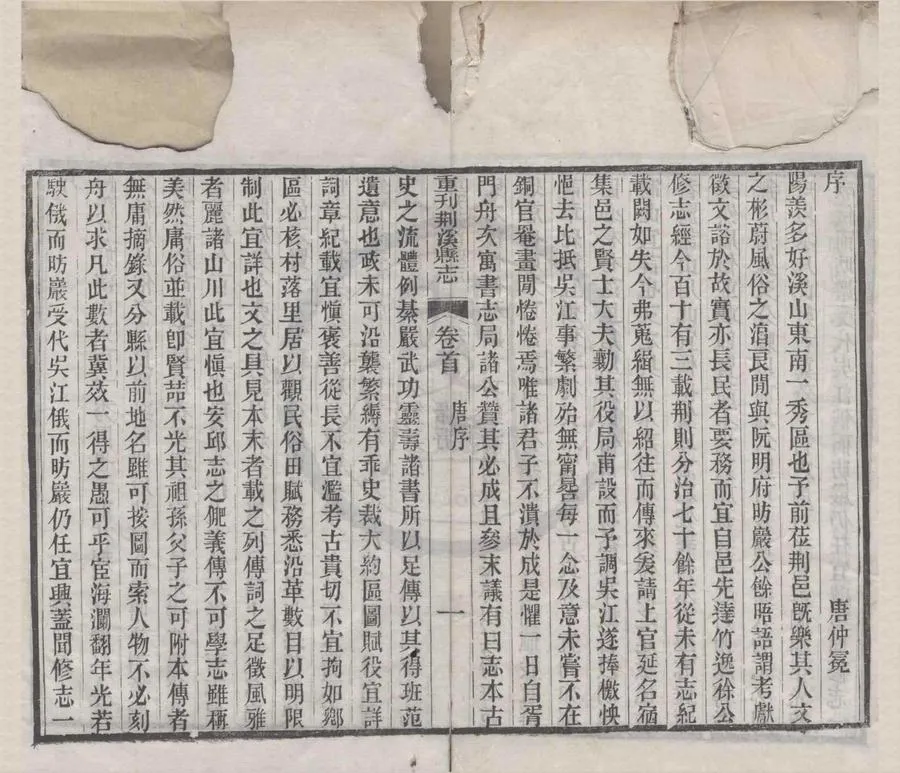 序 唐仲冕
陽羨多好溪山東南一秀區也予前莅荆邑旣樂其人文
之彬蔚風俗之湻良閒與阮明府昉巖公餘晤語謂考獻
徵文諮於故實亦長民者要務而宜自邑先達竹逸徐公
修志經今百十有三載荆則分治七十餘年從未有志紀
載闕如失今弗蒐緝無以紹往而傳來爰請上官延名宿
集邑之賢士大夫勷其役局甫設而予調吳江遂捧檄怏
悒去比抵吳江事繁劇殆無甯晷每一念及意未嘗不在
銅官罨畫閒惓惓焉唯諸君子不潰於成是懼一日自胥
門舟次寓書志局諸公贊其必成且參末議有曰志本古
重刊荆溪縣志 卷首 唐序 一
史之流體例綦嚴武功靈壽諸書所以足傳以其得班范
遺意也政未可沿襲繁縟有乖史裁大約區圖賦役宜詳
詞章紀載宜愼褒善從長不宜濫考古貴切不宜拘如鄉
區必核村落里居以觀民俗田賦務悉沿革數目以明限
制此宜詳也文之具見本末者載之列傳詞之足徵風雅
者麗諸山川此宜愼也安邱志之俷義傳不可學志雖稱
美然庸俗並載卽賢喆不光其祖孫父子之可附本傳者
無庸摘錄又分縣以前地名雖可按圖而索人物不必刻
舟以求凡此數者冀效一得之愚可乎宦海瀾翻年光若
駛俄而昉巖受代吳江俄而昉巖仍任宜興蓋聞修志一